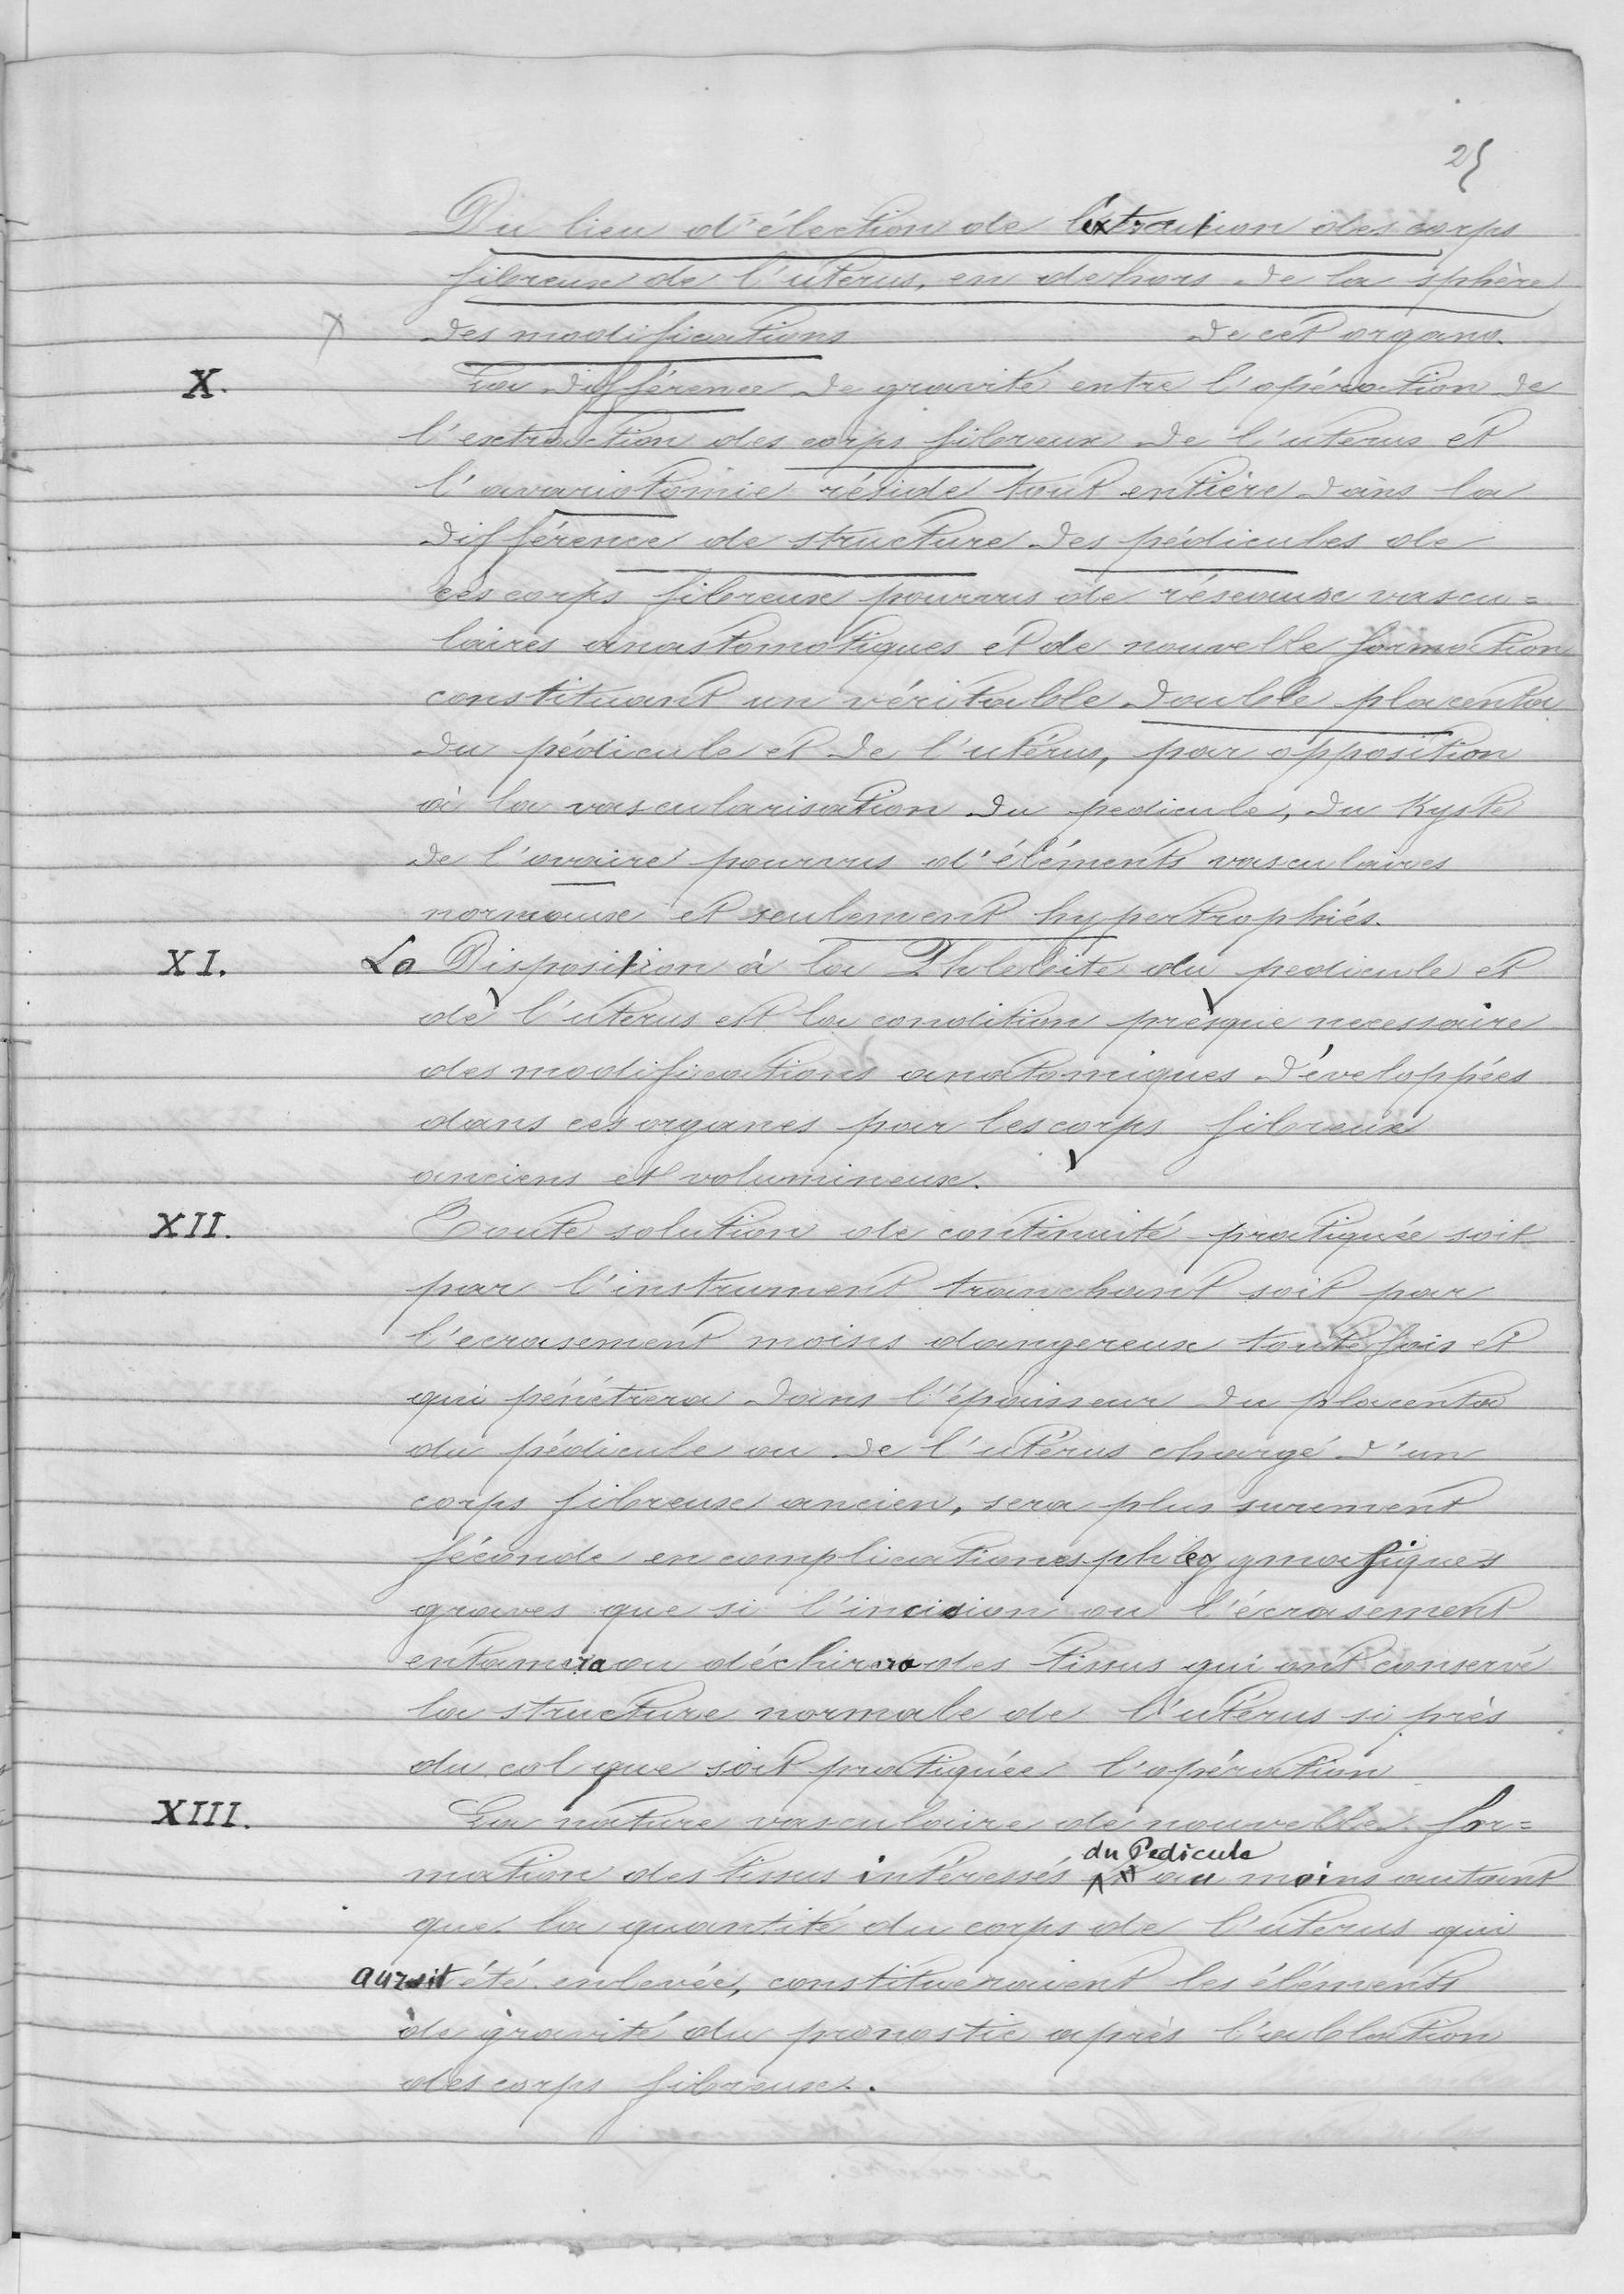 25
Du lieu d'élection de l'éxtraction des corps
fibreux de l'uterus, en dehors de la sphère
des modifications de cet organe.
X. La différence de gravité entre l'opération de
l'extraction des corps fibreux de l'uterus et
l'ovariotomie réside tout entière dans la
différence de structure des pédicules de
ces corps fibreux pourvus de réseaux vascu=
laires anastomotiques et de nouvelle formation
constituant un véritable double placenta
du pédicule et de l'utérus, par opposition
à la vascularisation du pedicule, du Kyste
de l'ovaire pourvus d'éléments vasculaires
normaux et seulement hypertrophiés.
XI. La Disposition à la Phlebite du pedicule et
de l'uterus est la condition presque necessaire
des modifications anatomiques développées
dans ces organes par les corps fibreux
anciens et volumineux.
XII. Toute solution de continuité pratiquée soit
par l'instrument tranchant soit par
l'ecrasement moins dangereux toute fois et
qui pénétrera dans l'épaisseur du placenta
du pédicule ou de l'utérus chargé d'un
corps fibreux ancien, sera plus surement
féconde en complications phlegmasiques
graves que si l'incision ou l'écrasement
entamera ou déchirera des tissus qui ont conservé
la structure normale de l'utérus si près
du col que soit pratiquée l'opération
XIII. La nature vasculaire de nouvelle for=
du Pedicule
mation des tissus intéressés au moins autant
que la quantité du corps de l'uterus qui
aurait été enlevée, constitueraient les éléments
de gravité du pronostic après l'ablation
des corps fibreux.